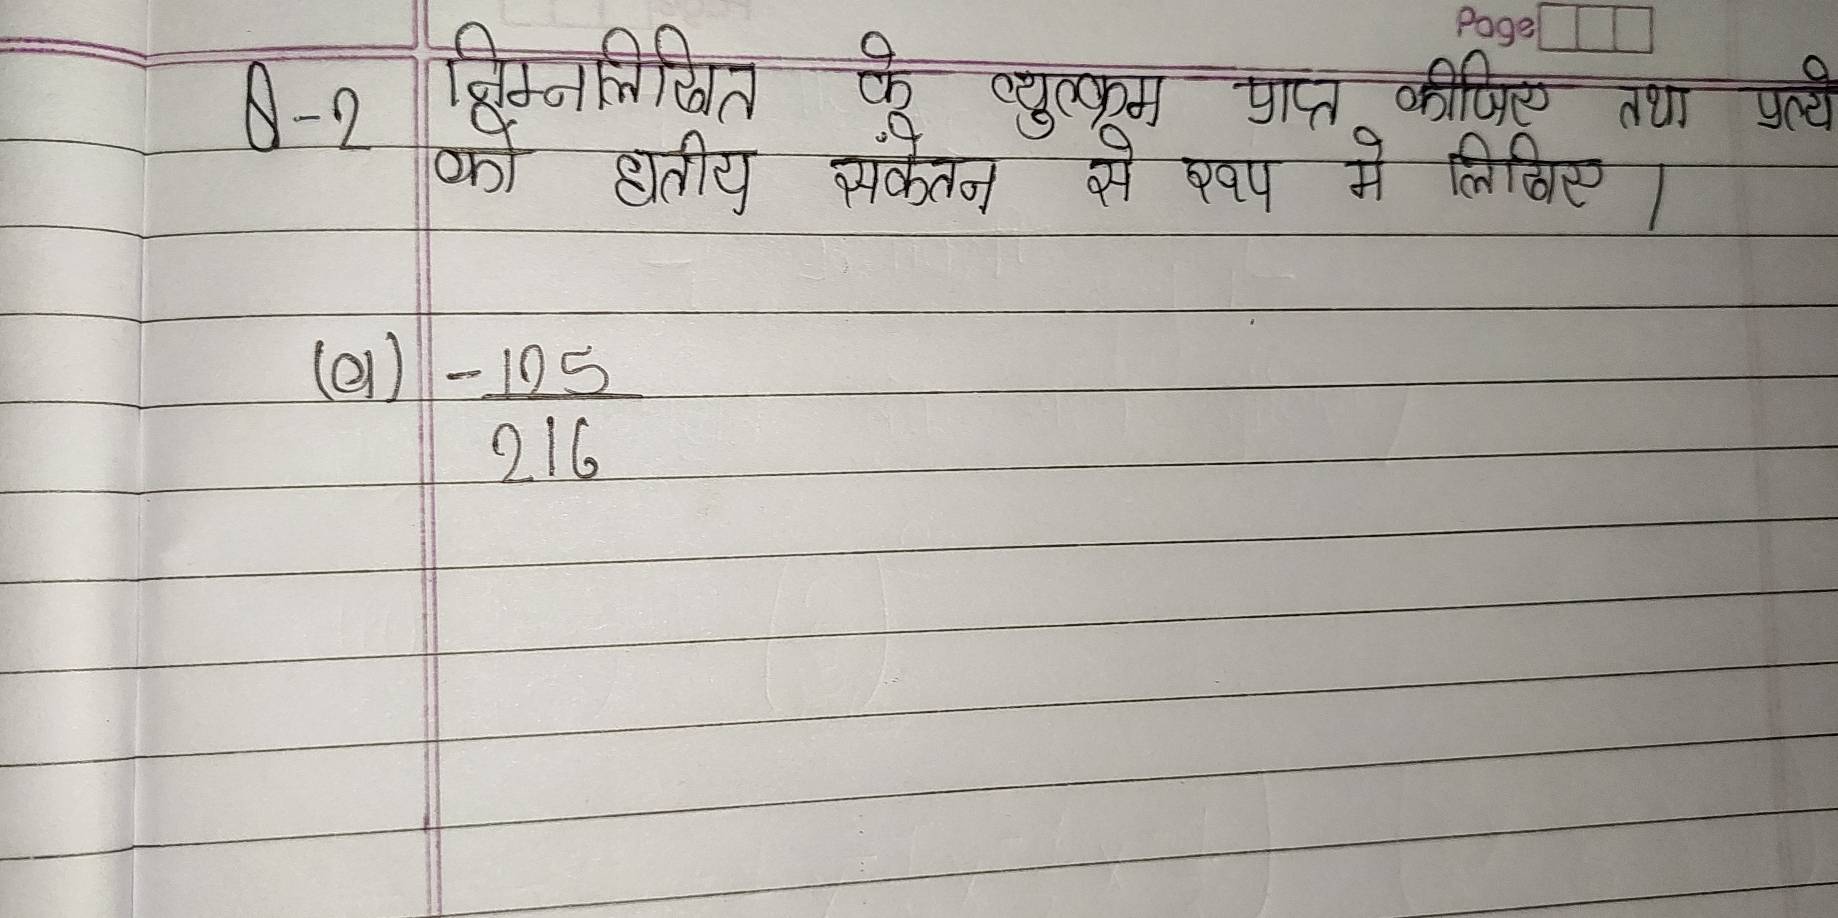 Page
Q-2 निम्नलिखित के व्युत्क्रम प्राप्त कीजिए तथा प्रत्ये
को घातीय संकेतन से रुप मे लिखिए |
(a) -125
216